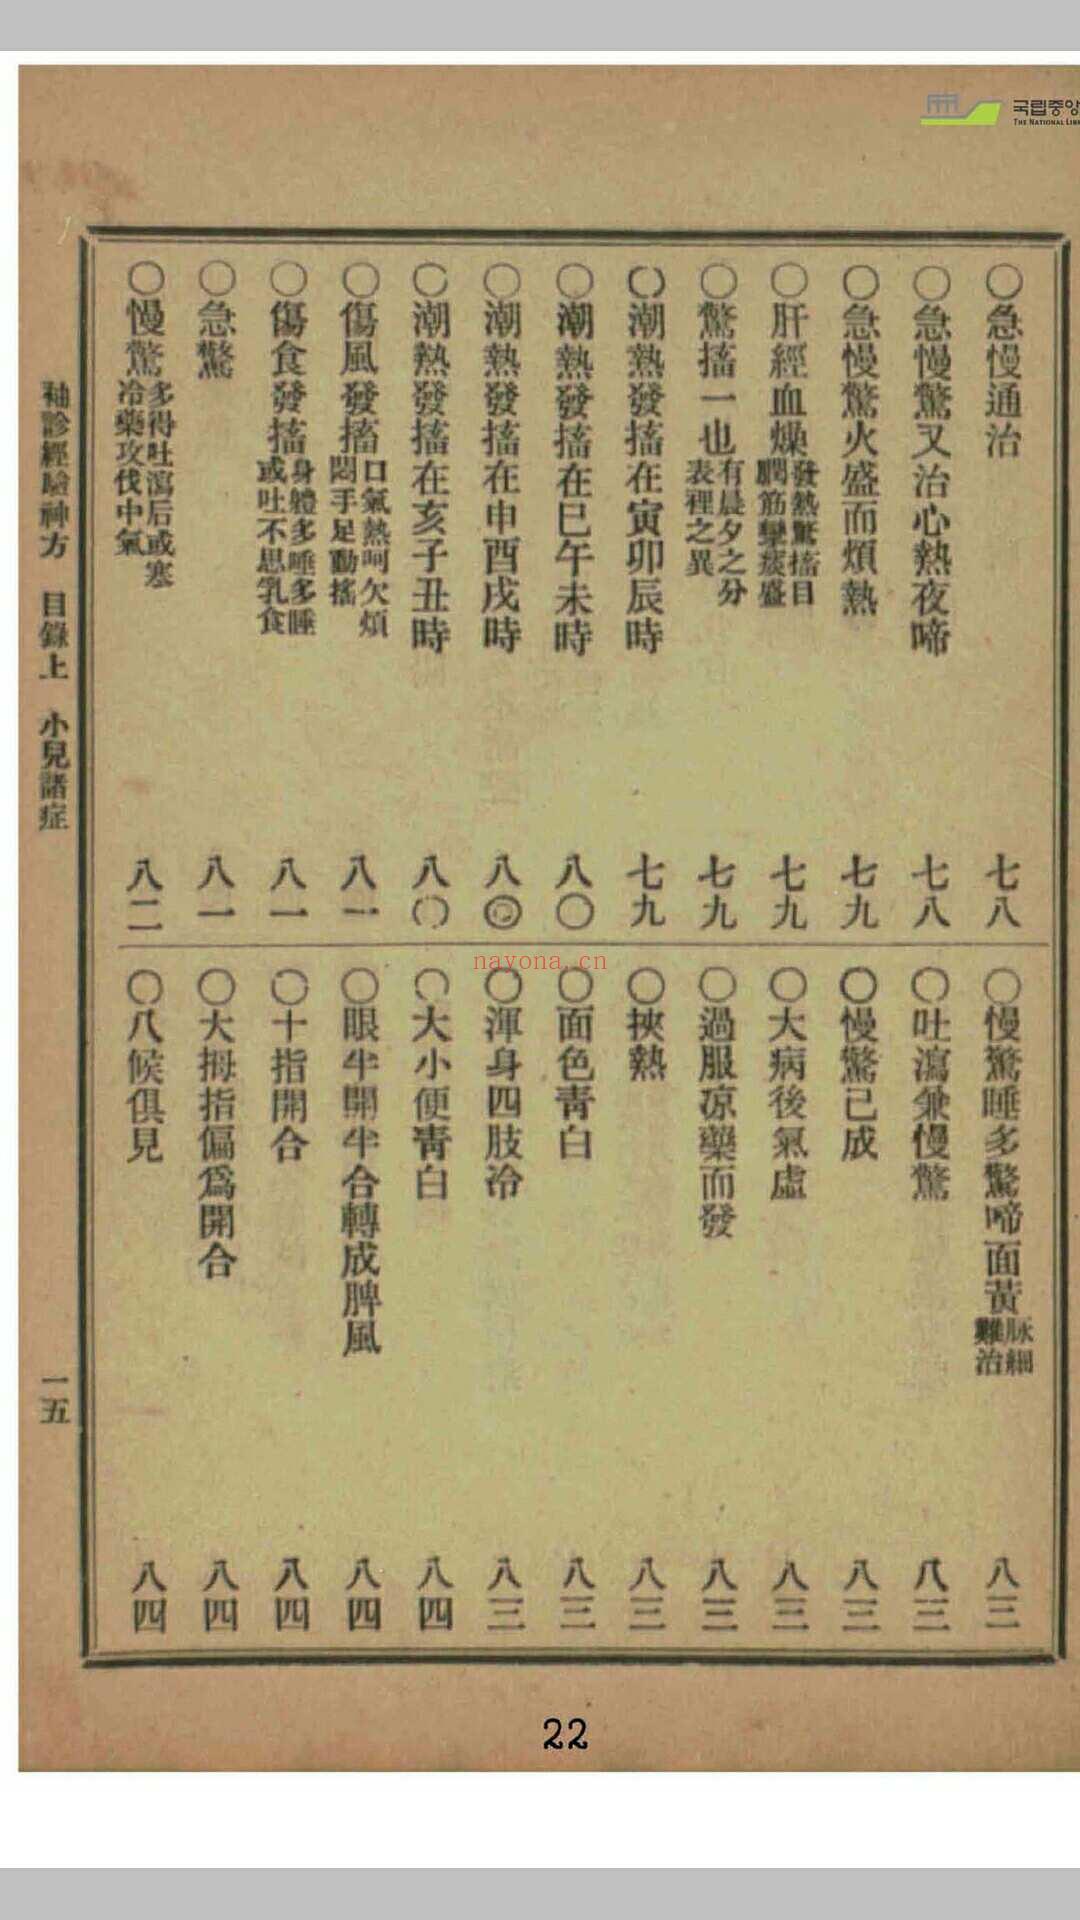 국립중앙
THE NATIONAL LIBR
〇急慢通治 七八
〇急慢驚又治心熱夜啼 七八
〇急慢驚火盛而煩熱 七九
〇肝經血燥 發熱驚搐目
瞤筋攣痰盛 七九
〇驚搐一也 有晨夕之分
表裡之異 七九
〇潮熱發搐在寅卯辰時 七九
〇潮熱發搐在巳午未時 八〇
〇潮熱發搐在申酉戌時 八〇
〇潮熱發搐在亥子丑時 八〇
〇傷風發搐 口氣熱呵欠煩
悶手足動搖 八一
〇傷食發搐 身體多睡多睡
或吐不思乳食 八一
〇急驚 八一
〇慢驚 多得吐瀉后或寒
冷藥攻伐中氣 八二
〇慢驚睡多驚啼面黃 脉細
難治 八三
〇吐瀉兼慢驚 八三
〇慢驚已成 八三
〇大病後氣虛 八三
〇過服凉藥而發 八三
〇挾熱 八三
〇面色靑白 八三
〇渾身四肢冷 八三
〇大小便靑白 八四
〇眼半開半合轉成脾風 八四
〇十指開合 八四
〇大拇指偏爲開合 八四
〇八候俱見 八四
袖診經驗神方 目錄上 小兒諸症 一五
nayona.cn
22